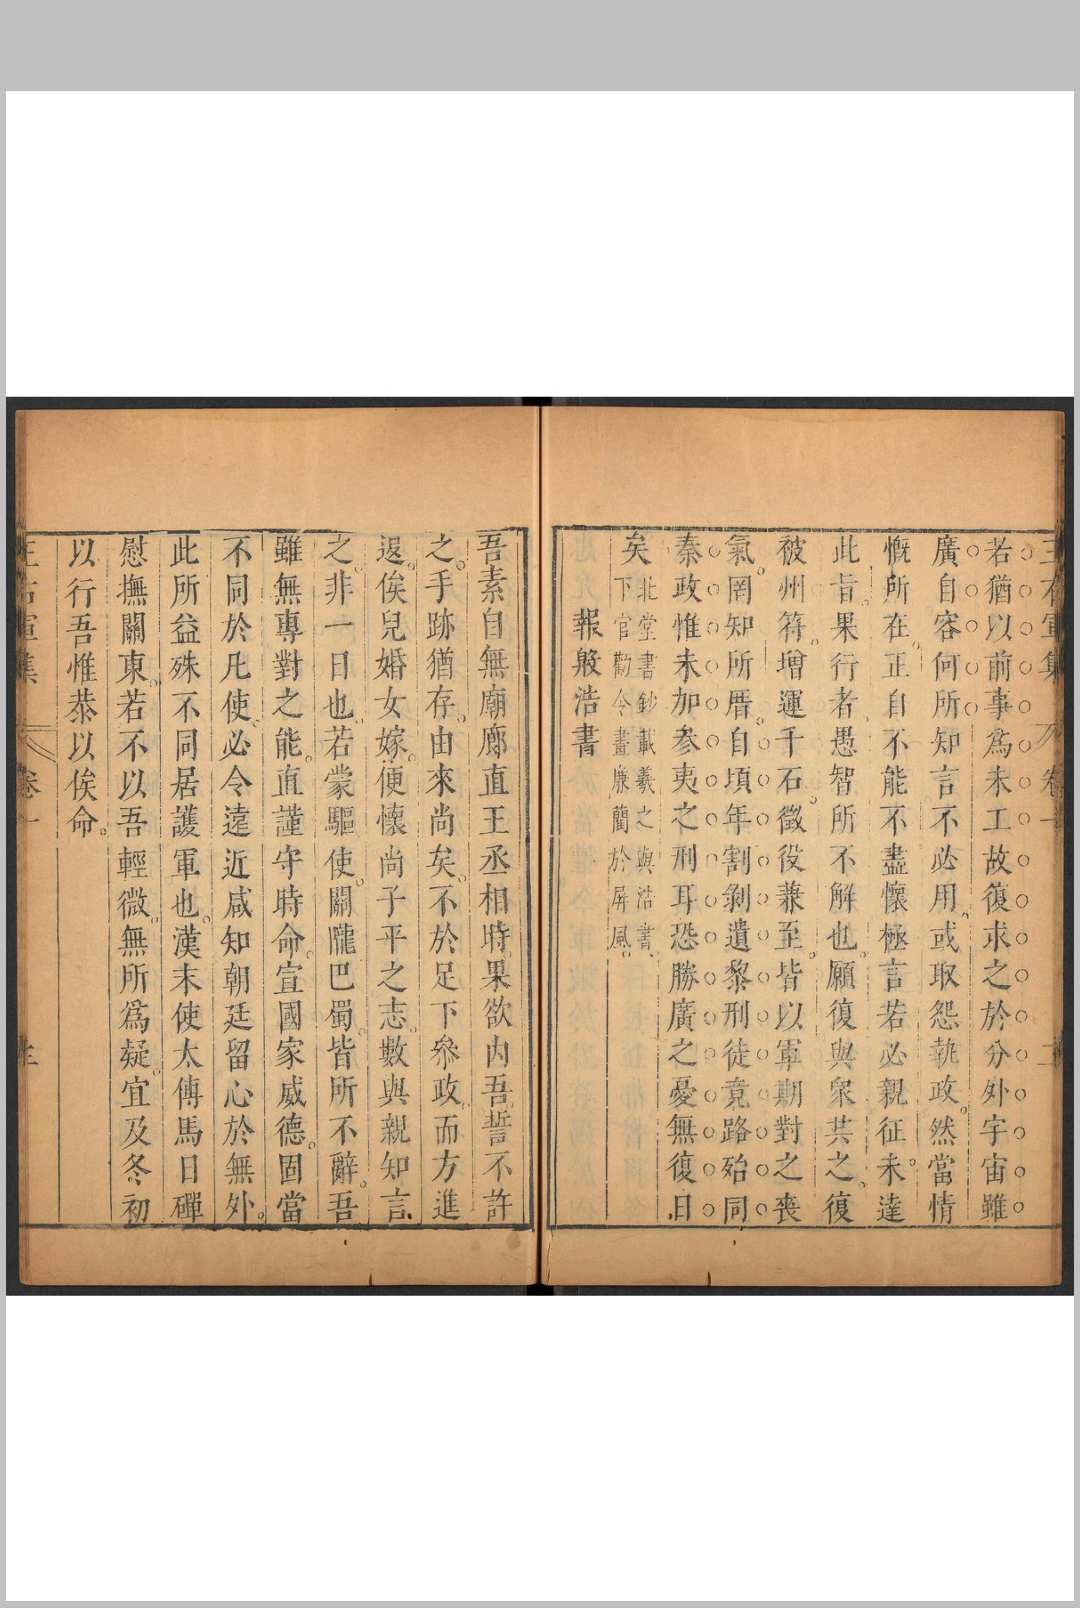 王右軍集 卷一
若猶以前事爲未工故復求之於分外宇宙雖
廣自容何所知言不必用或取怨執政然當情
慨所在正自不能不盡懷極言若必親征未達
此旨果行者愚智所不解也願復與衆共之復
被州符增運千石徵役兼至皆以軍期對之喪
氣罔知所厝自頃年割剝遺黎刑徒竟路殆同
秦政惟未加參夷之刑耳恐勝廣之憂無復日
矣
北堂書鈔載羲之與浩書
下官勸令畫廉藺於屏風
報殷浩書
吾素自無廟廊直王丞相時果欲內吾誓不許
之手跡猶存由來尚矣不於足下參政而方進
退俟兒婚女嫁便懷尚子平之志數與親知言
之非一日也若蒙驅使關隴巴蜀皆所不辭吾
雖無專對之能直謹守時命宣國家威德固當
不同於凡使必令遠近咸知朝廷留心於無外
此所益殊不同居護軍也漢末使太傅馬日磾
慰撫關東若不以吾輕微無所爲疑宜及冬初
以行吾惟恭以俟命
王右軍集 卷一